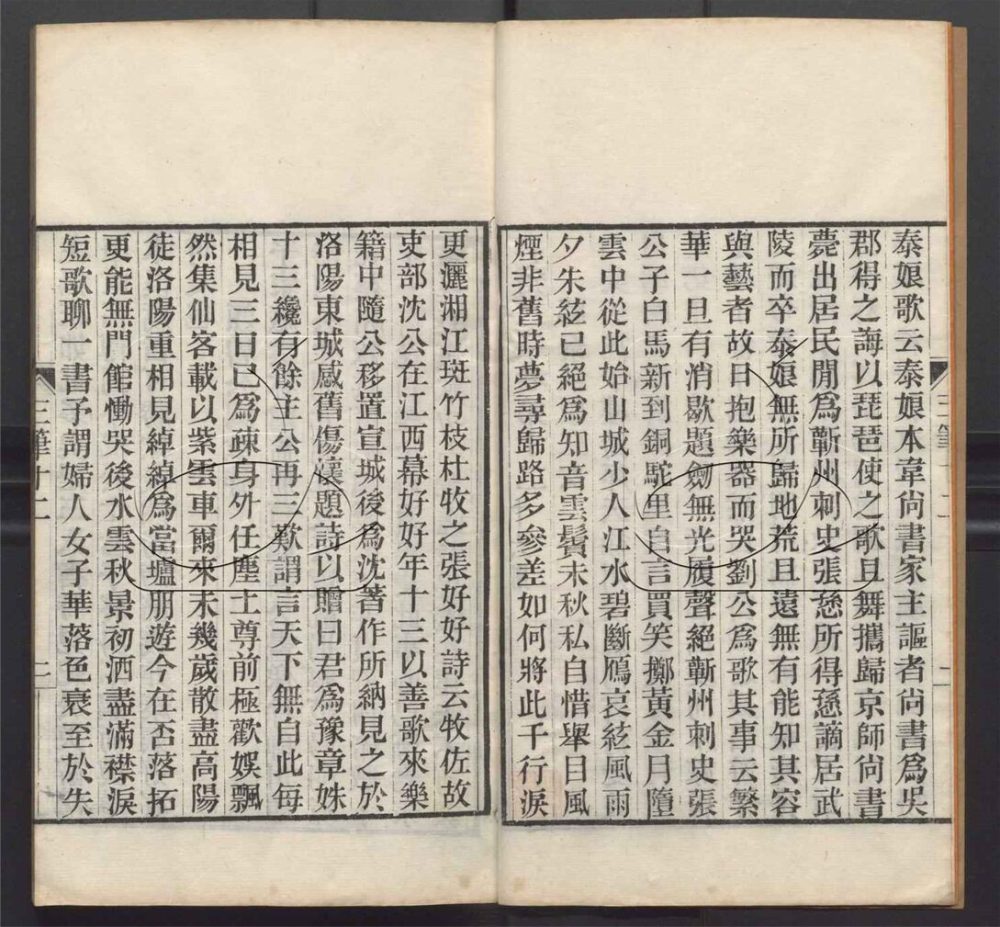 泰娘歌云泰娘本韋尚書家主謳者尚書爲吳
郡得之誨以琵琶使之歌且舞攜歸京師尚書
薨出居民閒爲蘄州刺史張愻所得愻謫居武
陵而卒泰娘無所歸地荒且遠無有能知其容
與藝者故日抱樂器而哭劉公爲歌其事云繁
華一旦有消歇題劍無光履聲絕蘄州刺史張
公子白馬新到銅駝里自言買笑擲黃金月墮
雲中從此始山城少人江水碧斷鴈哀絃風雨
夕朱絃已絕爲知音雲鬢未秋私自惜舉目風
煙非舊時夢尋歸路多參差如何將此千行淚
更灑湘江斑竹枝杜牧之張好好詩云牧佐故
吏部沈公在江西幕好好年十三以善歌來樂
籍中隨公移置宣城後爲沈著作所納見之於
洛陽東城感舊傷懷題詩以贈曰君爲豫章姝
十三纔有餘主公再三歎謂言天下無自此每
相見三日已爲疎身外任塵土尊前極歡娛飄
然集仙客載以紫雲車爾來未幾歲散盡高陽
徒洛陽重相見綽綽爲當壚朋遊今在否落拓
更能無門館慟哭後水雲秋景初洒盡滿襟淚
短歌聊一書予謂婦人女子華落色衰至於失
三筆十二
二